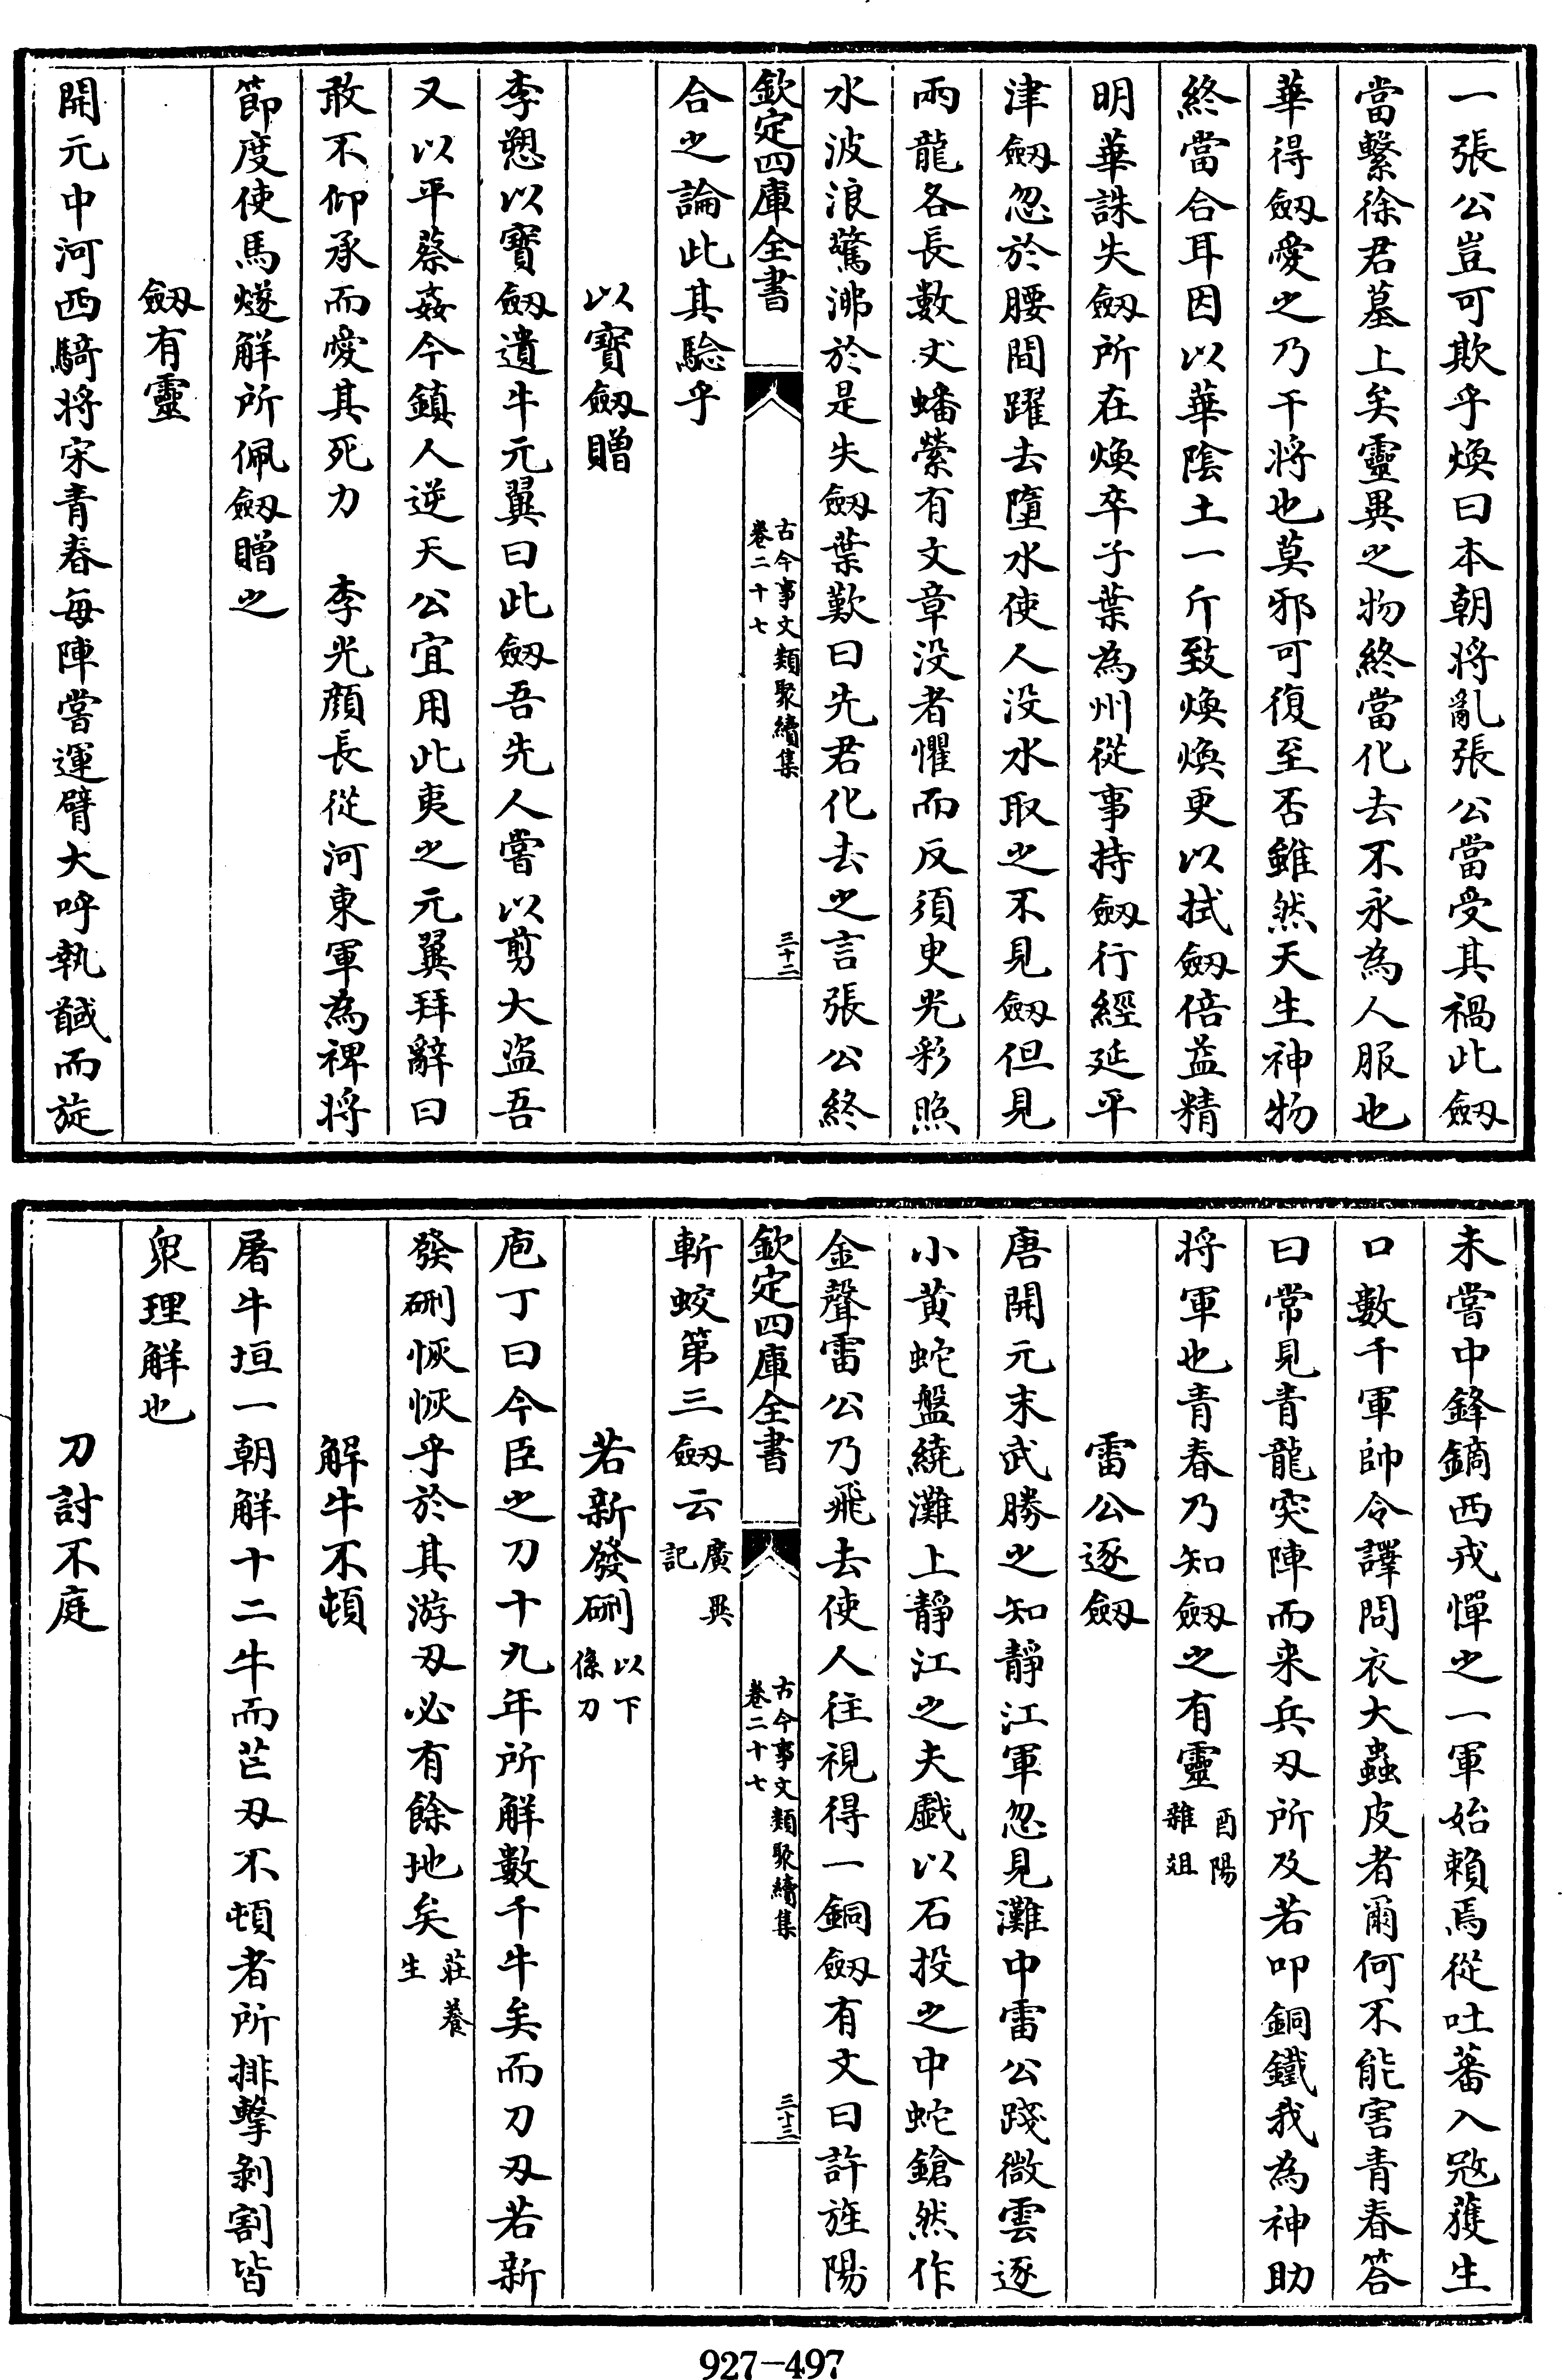 一張公豈可欺乎煥曰本朝將亂張公當受其禍此劒
當繫徐君墓上矣靈異之物終當化去不永為人服也
華得劒愛之乃干將也莫邪可復至否雖然天生神物
終當合耳因以華陰土一斤致煥煥更以拭劒倍益精
明華誅失劒所在煥卒子葉為州從事持劒行經延平
津劒忽於腰間躍去墮水使人没水取之不見劒但見
兩龍各長數丈蟠縈有文章没者懼而反須臾光彩照
水波浪驚沸於是失劒葉歎曰先君化去之言張公終
欽定四庫全書
古今事文類聚續集
卷二十七
三十二
合之論此其驗乎
以寶劒贈
李愬以寶劒遺牛元翼曰此劒吾先人嘗以剪大盜吾
又以平蔡姦今鎮人逆天公宜用此夷之元翼拜辭曰
敢不仰承而愛其死力　李光顔長從河東軍為裨將
節度使馬燧解所佩劒贈之
劒有靈
開元中河西騎將宋青春每陣嘗運臂大呼執馘而旋
未嘗中鋒鏑西戎憚之一軍始賴焉從吐蕃入寇獲生
口數千軍帥令譯問衣大蟲皮者爾何不能害青春答
曰常見青龍突陣而来兵刃所及若叩銅鐵我為神助
將軍也青春乃知劒之有靈酉陽雜俎
雷公逐劒
唐開元末武勝之知靜江軍忽見灘中雷公踐微雲逐
小黄蛇盤繞灘上靜江之夫戲以石投之中蛇鎗然作
金聲雷公乃飛去使人往視得一銅劒有文曰許旌陽
欽定四庫全書
古今事文類聚續集
卷二十七
三十三
斬蛟第三劒云廣異記
若新發硎以下係刀
庖丁曰今臣之刀十九年所解數千牛矣而刀刃若新
發硎恢恢乎於其游刃必有餘地矣莊養生
解牛不頓
屠牛垣一朝解十二牛而芒刃不頓者所排擊剝割皆
衆理解也
刀討不庭
927-497